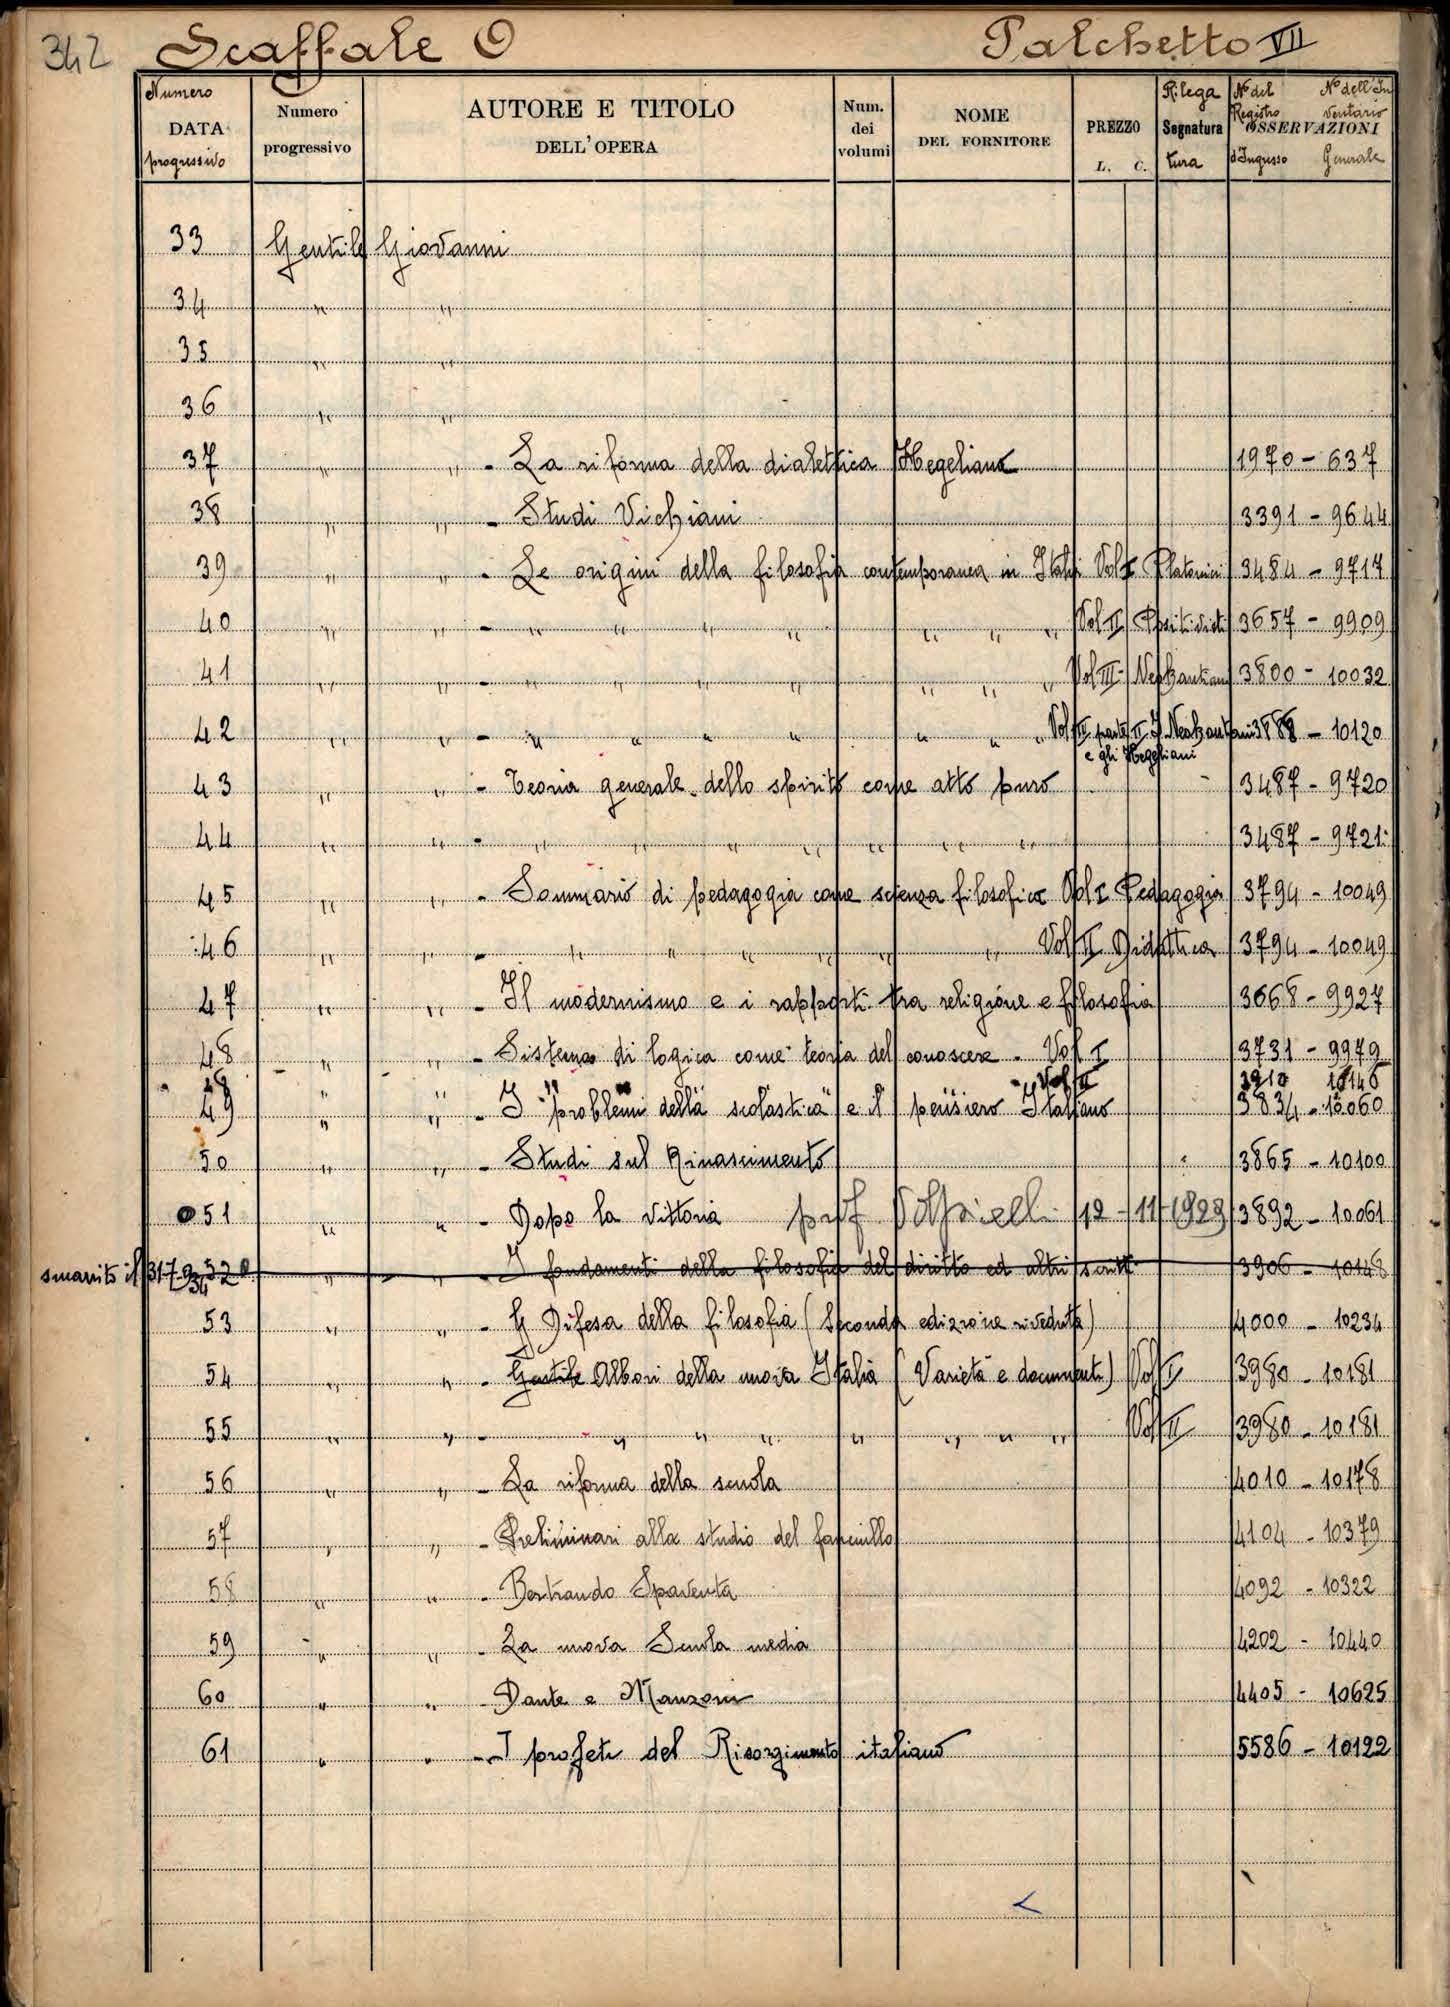 342 Scaffale O Palchetto VII
Numero DATA progressivo
Numero progressivo
AUTORE E TITOLO DELL'OPERA
Num. dei volumi
NOME DEL FORNITORE
PREZZO L. C.
Rilega Segnatura tura
No del Registro d'Ingresso No dell'In ventario Generale OSSERVAZIONI
33 Gentile Giovanni
34 " "
35 " "
36 " "
37 " " - La riforma della dialettica Hegeliana 1970 - 637
38 " " - Studi Vichiani 3391 - 9644
39 " " - Le origini della filosofia contemporanea in Italia Vol I Platonici 3484 - 9717
40 " " - " " " " " " " Vol II Positivisti 3657 - 9909
41 " " - " " " " " " " Vol III - Neokantiani 3800 - 10032
42 " " - " " " " " " " Vol III parte II I Neokantiani 3888 - 10120
e gli Hegeliani
43 " " - Teoria generale dello spirito come atto puro 3487 - 9720
44 " " - " " " " " " " 3487 - 9721
45 " " - Sommario di pedagogia come scienza filosofica Vol I Pedagogia 3794 - 10049
46 " " - " " " " " " Vol II Didattica 3794 - 10049
47 " " - Il modernismo e i rapporti tra religione e filosofia 3668 - 9927
48 " " - Sistema di logica come teoria del conoscere - Vol I 3731 - 9979
48 " " " " " - Vol II 3910 10146
49 " " - I problemi della scolastica e il pensiero Italiano 3834 - 10060
50 " " - Studi sul Rinascimento 3865 - 10100
51 " " - Dopo la vittoria prof Volpicelli 12 - 11 - 1929 3892 - 10061
smarrito il 31-7-934 52 " " - I fondamenti della filosofia del diritto ed altri scritti 3906 - 10148
53 " " - G Difesa della filosofia (Seconda edizione riveduta) 4000 - 10234
54 " " - Gentile Albori della nuova Italia (Varietà e documenti) Vol I 3980 - 10181
55 " " - " " " " " " " Vol II 3980 - 10181
56 " " - La riforma della scuola 4010 - 10178
57 " " - Preliminari alla studio del fanciullo 4104 - 10379
58 " " - Bertrando Spaventa 4092 - 10322
59 " " - La nuova Scuola media 4202 - 10440
60 " " - Dante e Manzoni 4405 - 10625
61 " " - I profeti del Risorgimento italiano 5586 - 10122